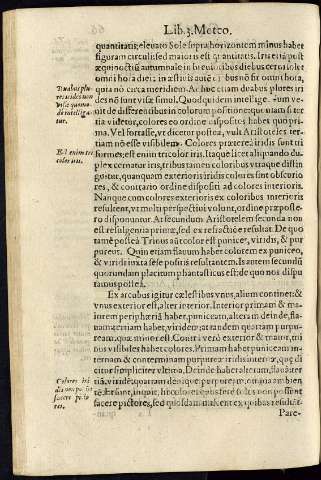 Lib.3. Meteo.
quantitatis; eleuato Sole supra horizontem minus habet
figuram circuli: sed maioris est quantitatis. Iris etiam post
æquinoctiũ autumnale in breuioribus diebus certo solet
omni hora diei: in æstiuis autē
quia nõ circa meridiem. Ac duplures iri
des nõ sunt visæ simul. Quod quidem intellige. ve
nit de differentibus in coloruṁ positione: etiam si ter
tia videtur, colores eo ordine dispositos habet quo pri-
ma. Vel fortasse, vt dicetur postea, vult Aristoteles ter-
tiam nõ esse visibilem. Colores præterea iridis sunt tri
formes: est enim tricolor iris. Itaque licet aliquando du-
plex cernatur iris, tribus tamen coloribus vtraque distin
guitur, quanquam exterioris iridis colores sunt obscurio
res, & contrario ordine dispositi ad colores interioris.
Nanque cum colores exterioris ex coloribus interioris
resultent, vt multi perspectiui volunt, ordine præposte-
ro disponuntur. At secundum Aristotelem secunda non
est resulgentia primæ, sed ex refractiõe resultat. De quo
tamē postea. Trious aũt color est puniceꝰ, viridis, & pur
pureus. Quin etiam flauum habet colorem ex puniceo,
& viridi iuxta sese positis resultantem. Is autem secundũ
quorundam placitum phantasticus est: de quo nos dispu
tamus postea.
Ex arcubus igitur cælestibus vnus, alium continet: &
vnus exterior est, alter interior. Interior primam & ma-
iorem peripheriã habet, puniceato, alteram deinde, fla-
uam; tertiam habet, viridem: at quartam purpu-
ream, quæ minor est. Contrà verò exterior & maior, mi
nus visibiles habet colores. Primam habet puniceam in-
ternam & conterminam purpureæ iridis interioris, quę di
citur simpliciter vltima. Deinde habet alteram, flauã: ter
tiã, viridē: quartam denique purpuream,
tē. Et sunt, inquit, hi colores quos ferè solos non possunt
facere pictores, sed quosdam miscent ex quibus resultãt.
Pare-
Duabus plu-
res irides non
visæ quomo-
do intelliga-
tur.
Est enim tri
color iris.
Colores iri
dis non possũt
facere picto
res.